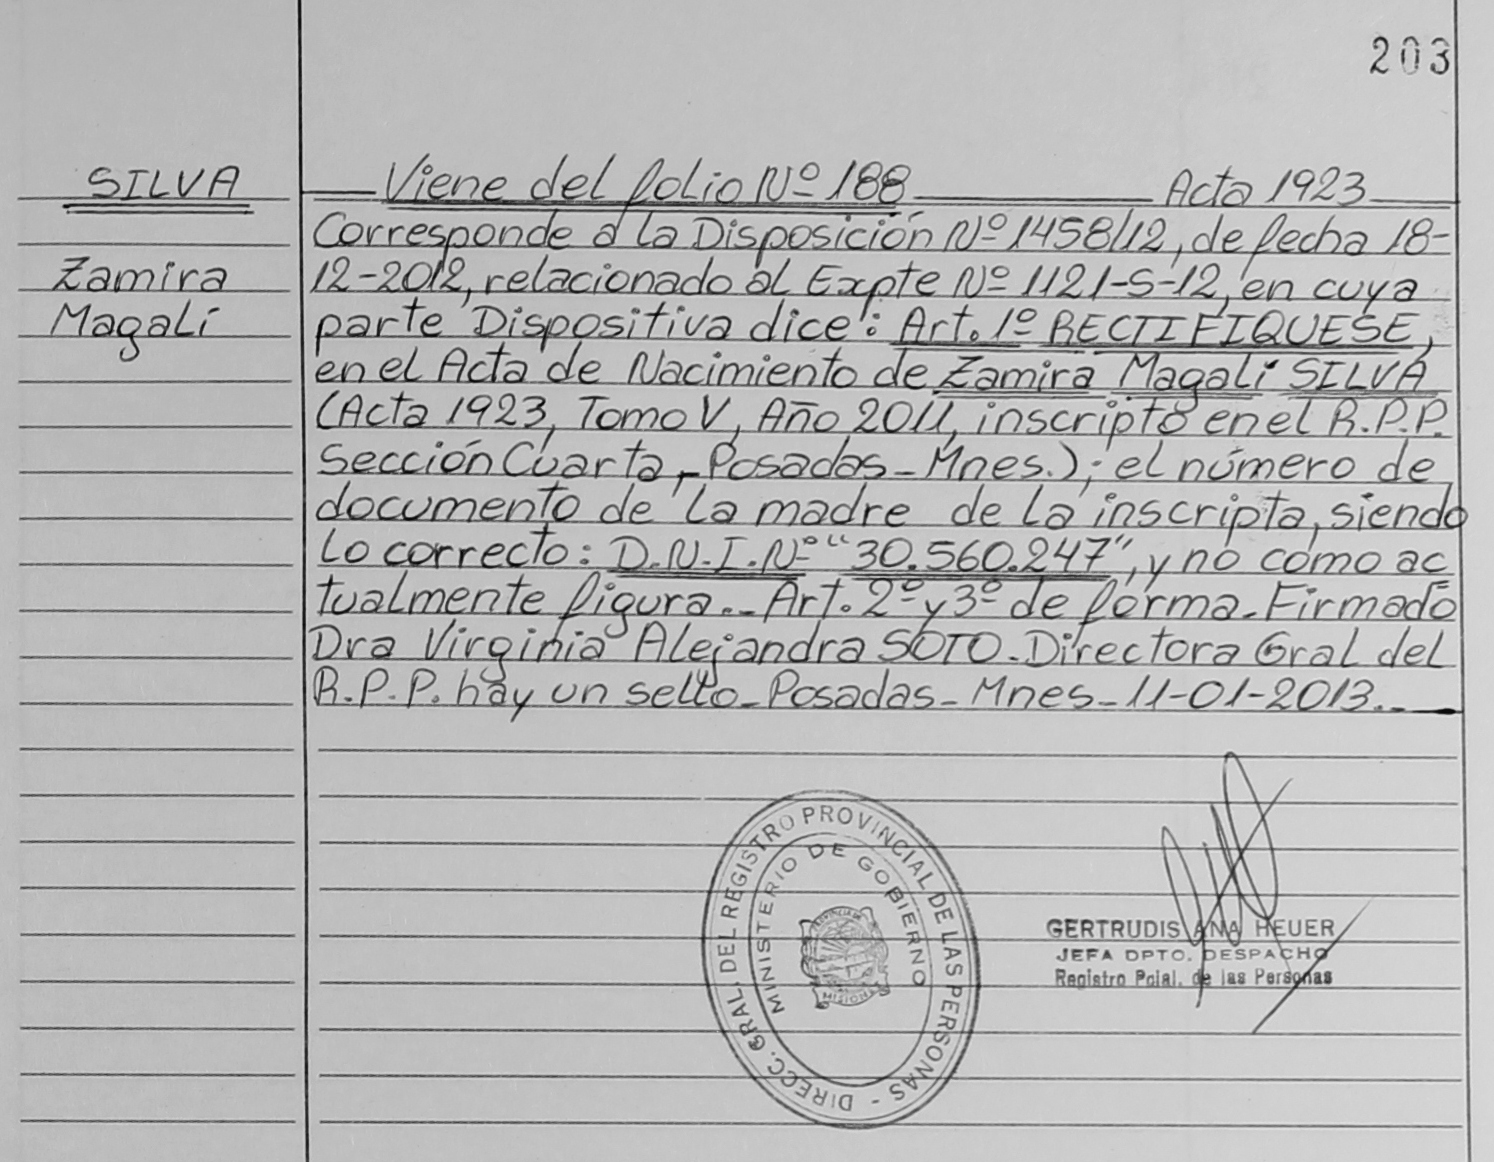 203
SILVA
Zamira
Magalí
Viene del folio Nº 188 Acta 1923
Corresponde a la Disposición Nº 1458/12, de fecha 18-
12-2012, relacionado al Expte Nº 1121-S-12, en cuya
parte Dispositiva dice: Art. 1º RECTIFIQUESE,
en el Acta de Nacimiento de Zamira Magalí SILVA
(Acta 1923, Tomo V, Año 2011, inscripto en el R.P.P.
Sección Cuarta, Posadas - Mnes.); el número de
documento de la madre de la inscripta, siendo
lo correcto: D.N.I. Nº "30.560.247", y no como ac
tualmente figura.- Art. 2º y 3º de forma. Firmado
Dra Virginia Alejandra SOTO. Directora Gral del
R.P.P. hay un sello - Posadas - Mnes - 11-01-2013.-
DIRECC. GRAL. DEL REGISTRO PROVINCIAL DE LAS PERSONAS -
MINISTERIO DE GOBIERNO
PROVINCIA DE
MISIONES
GERTRUDIS ANA HEUER
JEFA DPTO. DESPACHO
Registro Pcial. de las Personas